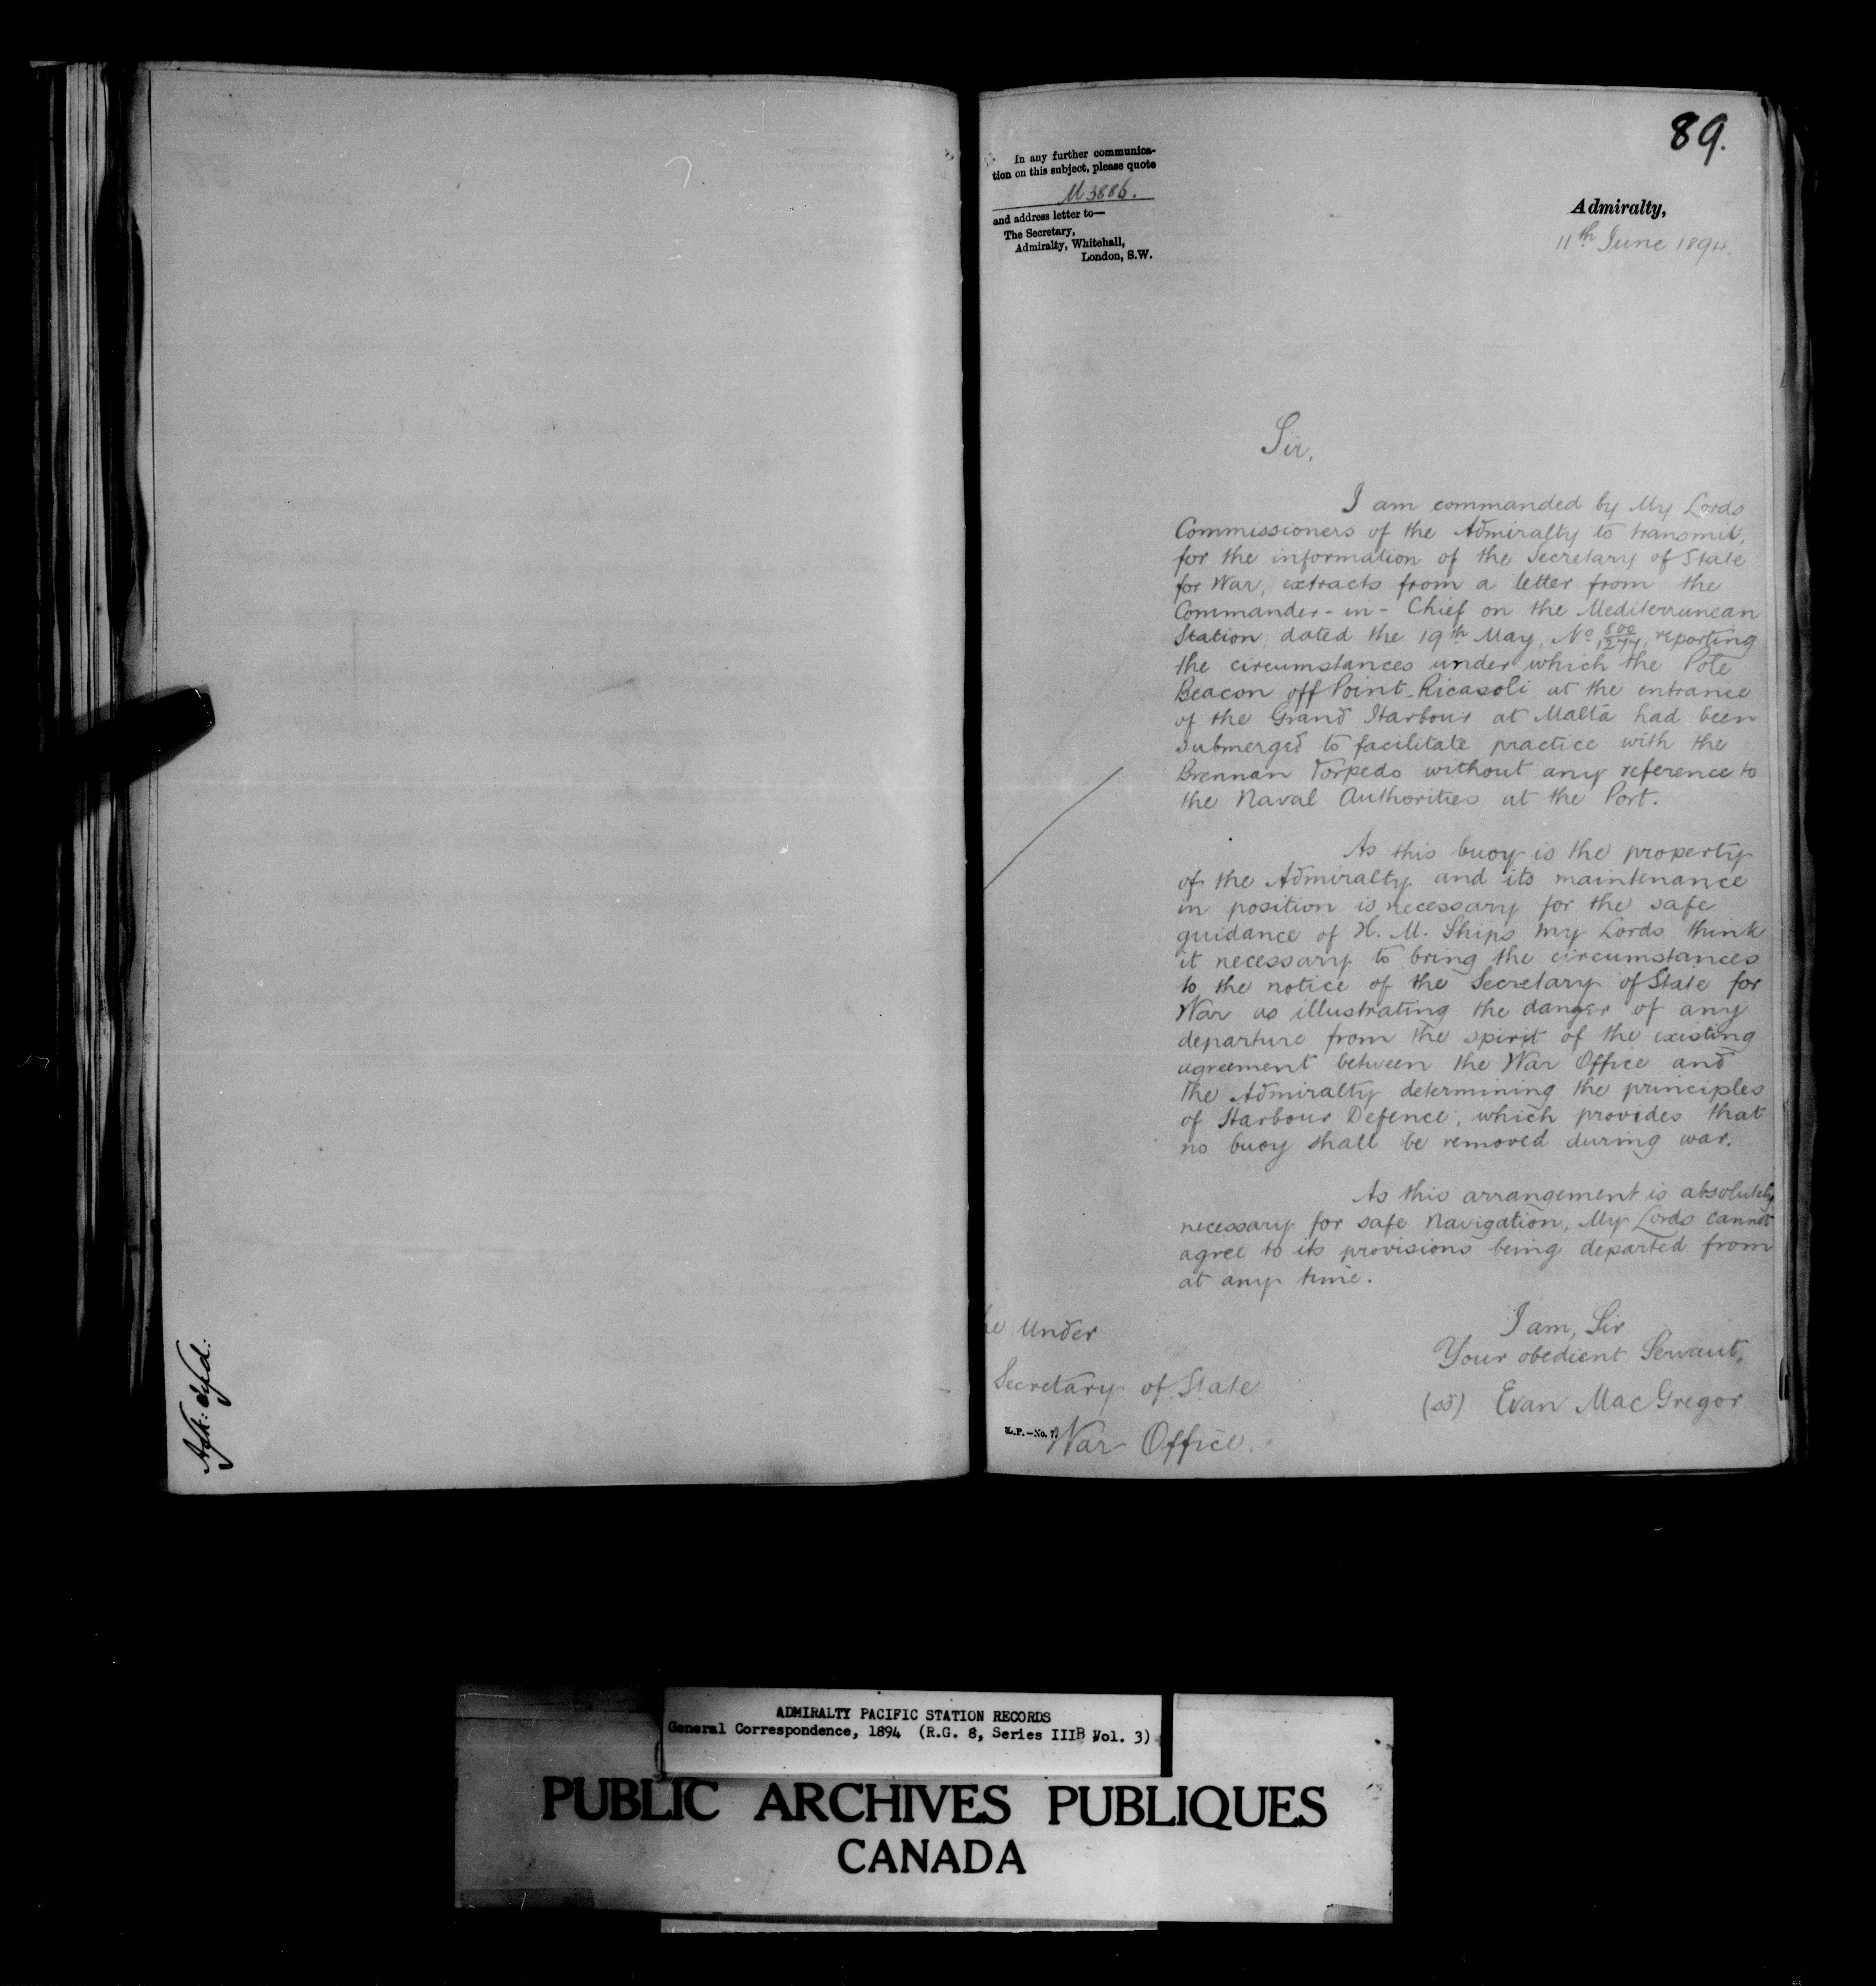 89.
In any further communica-
tion on this subject, please quote
M 3886.
and address letter to—
The Secretary,
Admiralty, Whitehall,
London, S.W.
Admiralty,
11th June 1894.
Sir,
I am commanded by My Lords
Commissioners of the Admiralty to transmit,
for the information of the Secretary of State
for War, extracts from a letter from the
Commander-in-Chief on the Mediterranean
Station, dated the 19th May, No reporting
the circumstances under which the Pole
Beacon off Point Ricasoli at the entrance
of the Grand Harbour at Malta had been
submerged to facilitate practice with the
Brennan Torpedo without any reference to
the Naval Authorities at the Port.
As this buoy is the property
of the Admiralty and its maintenance
in position is necessary for the safe
guidance of H. M. Ships My Lords think
it necessary to bring the circumstances
to the notice of the Secretary of State for
War as illustrating the danger of any
departure from the spirit of the existing
agreement between the War Office and
the Admiralty determining the principles
of Harbour Defence, which provides that
no buoy shall be removed during war.
As this arrangement is absolutely
necessary for safe navigation, My Lords cannot
agree to its provisions being departed from
at any time.
I am, Sir
Your obedient Servant,
(sd) Evan MacGregor
he Under
Secretary of State
War Office.
L.P.—No. 7.
ADMIRALTY PACIFIC STATION RECORDS
General Correspondence, 1894 (R.G. 8, Series IIIB Vol. 3)
PUBLIC ARCHIVES PUBLIQUES
CANADA